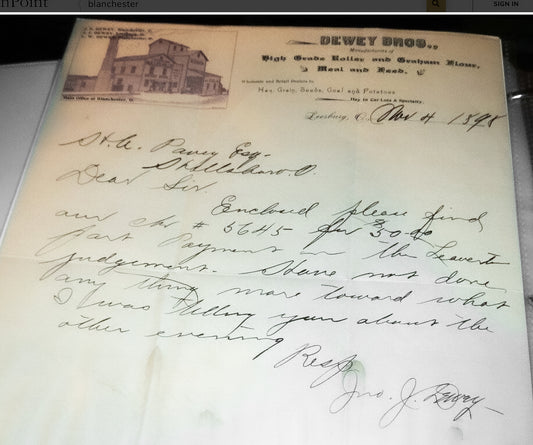 blanchester
SIGN IN
DEWEY BROS.
Manufacturers of
High Grade Roller and Graham Flour,
Meal and Feed.
Wholesale and Retail Dealers in
Hay, Grain, Seeds, Coal and Potatoes
Hay in Car Lots a Specialty.
Main Office at Blanchester, O.
Leesburg, O. Nov 4 1898
Pavey Esq.
Dear Sir.
Enclosed please find
our # 5645 for $50.00
part Payment on the
judgement. Have not done
any thing more toward what
I was telling you about the
other evening
Resp
Jno. J. Dewey